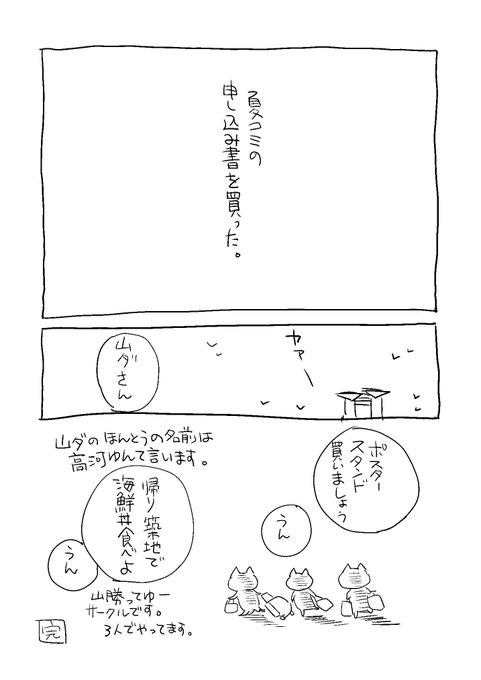 夏コミの
申し込み書を買った。
カァー
山ダさん
ポスター
スタンド
買いましょう
うん
山ダのほんとうの名前は
高河ゆんて言います。
帰り築地で
海鮮丼食べよ
うん
山勝ってゆー
サークルです。
3人でやってます。
完